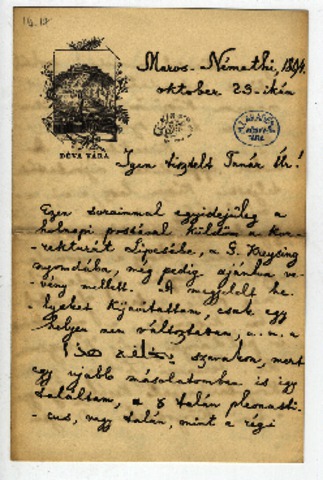 10.17
Maros-Némethi, 1894.
oktober 23-ikán
DÉVA VÁRA
Igen tisztelt Tanár Úr!
Ezen soraimmal egyidejüleg a
holnapi postával küldöm a kor-
-rekturát Lipcsébe, a G. Kreysing
nyomdába, még pedig ajánlva ve-
vény mellett. A megjelölt he-
lyeket kijavítottam, csak egy
helyen nem változtattam, a. m. a
هذا szavakon, mert
egy ujabb másolatomban is igy
találtam, a talán pleonasti-
-cus, vagy talán, mint a régi